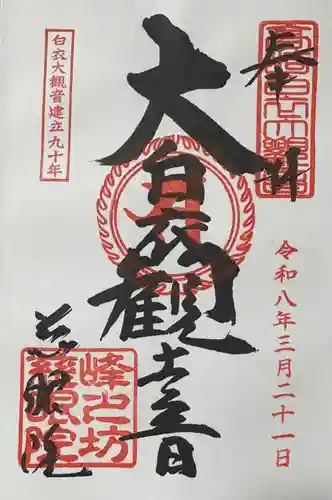 奉拝
高崎白衣大観音
令和八年三月二十一日
大白衣観音
白衣大觀音建立九十年
慈眼院
峰之坊
慈眼院